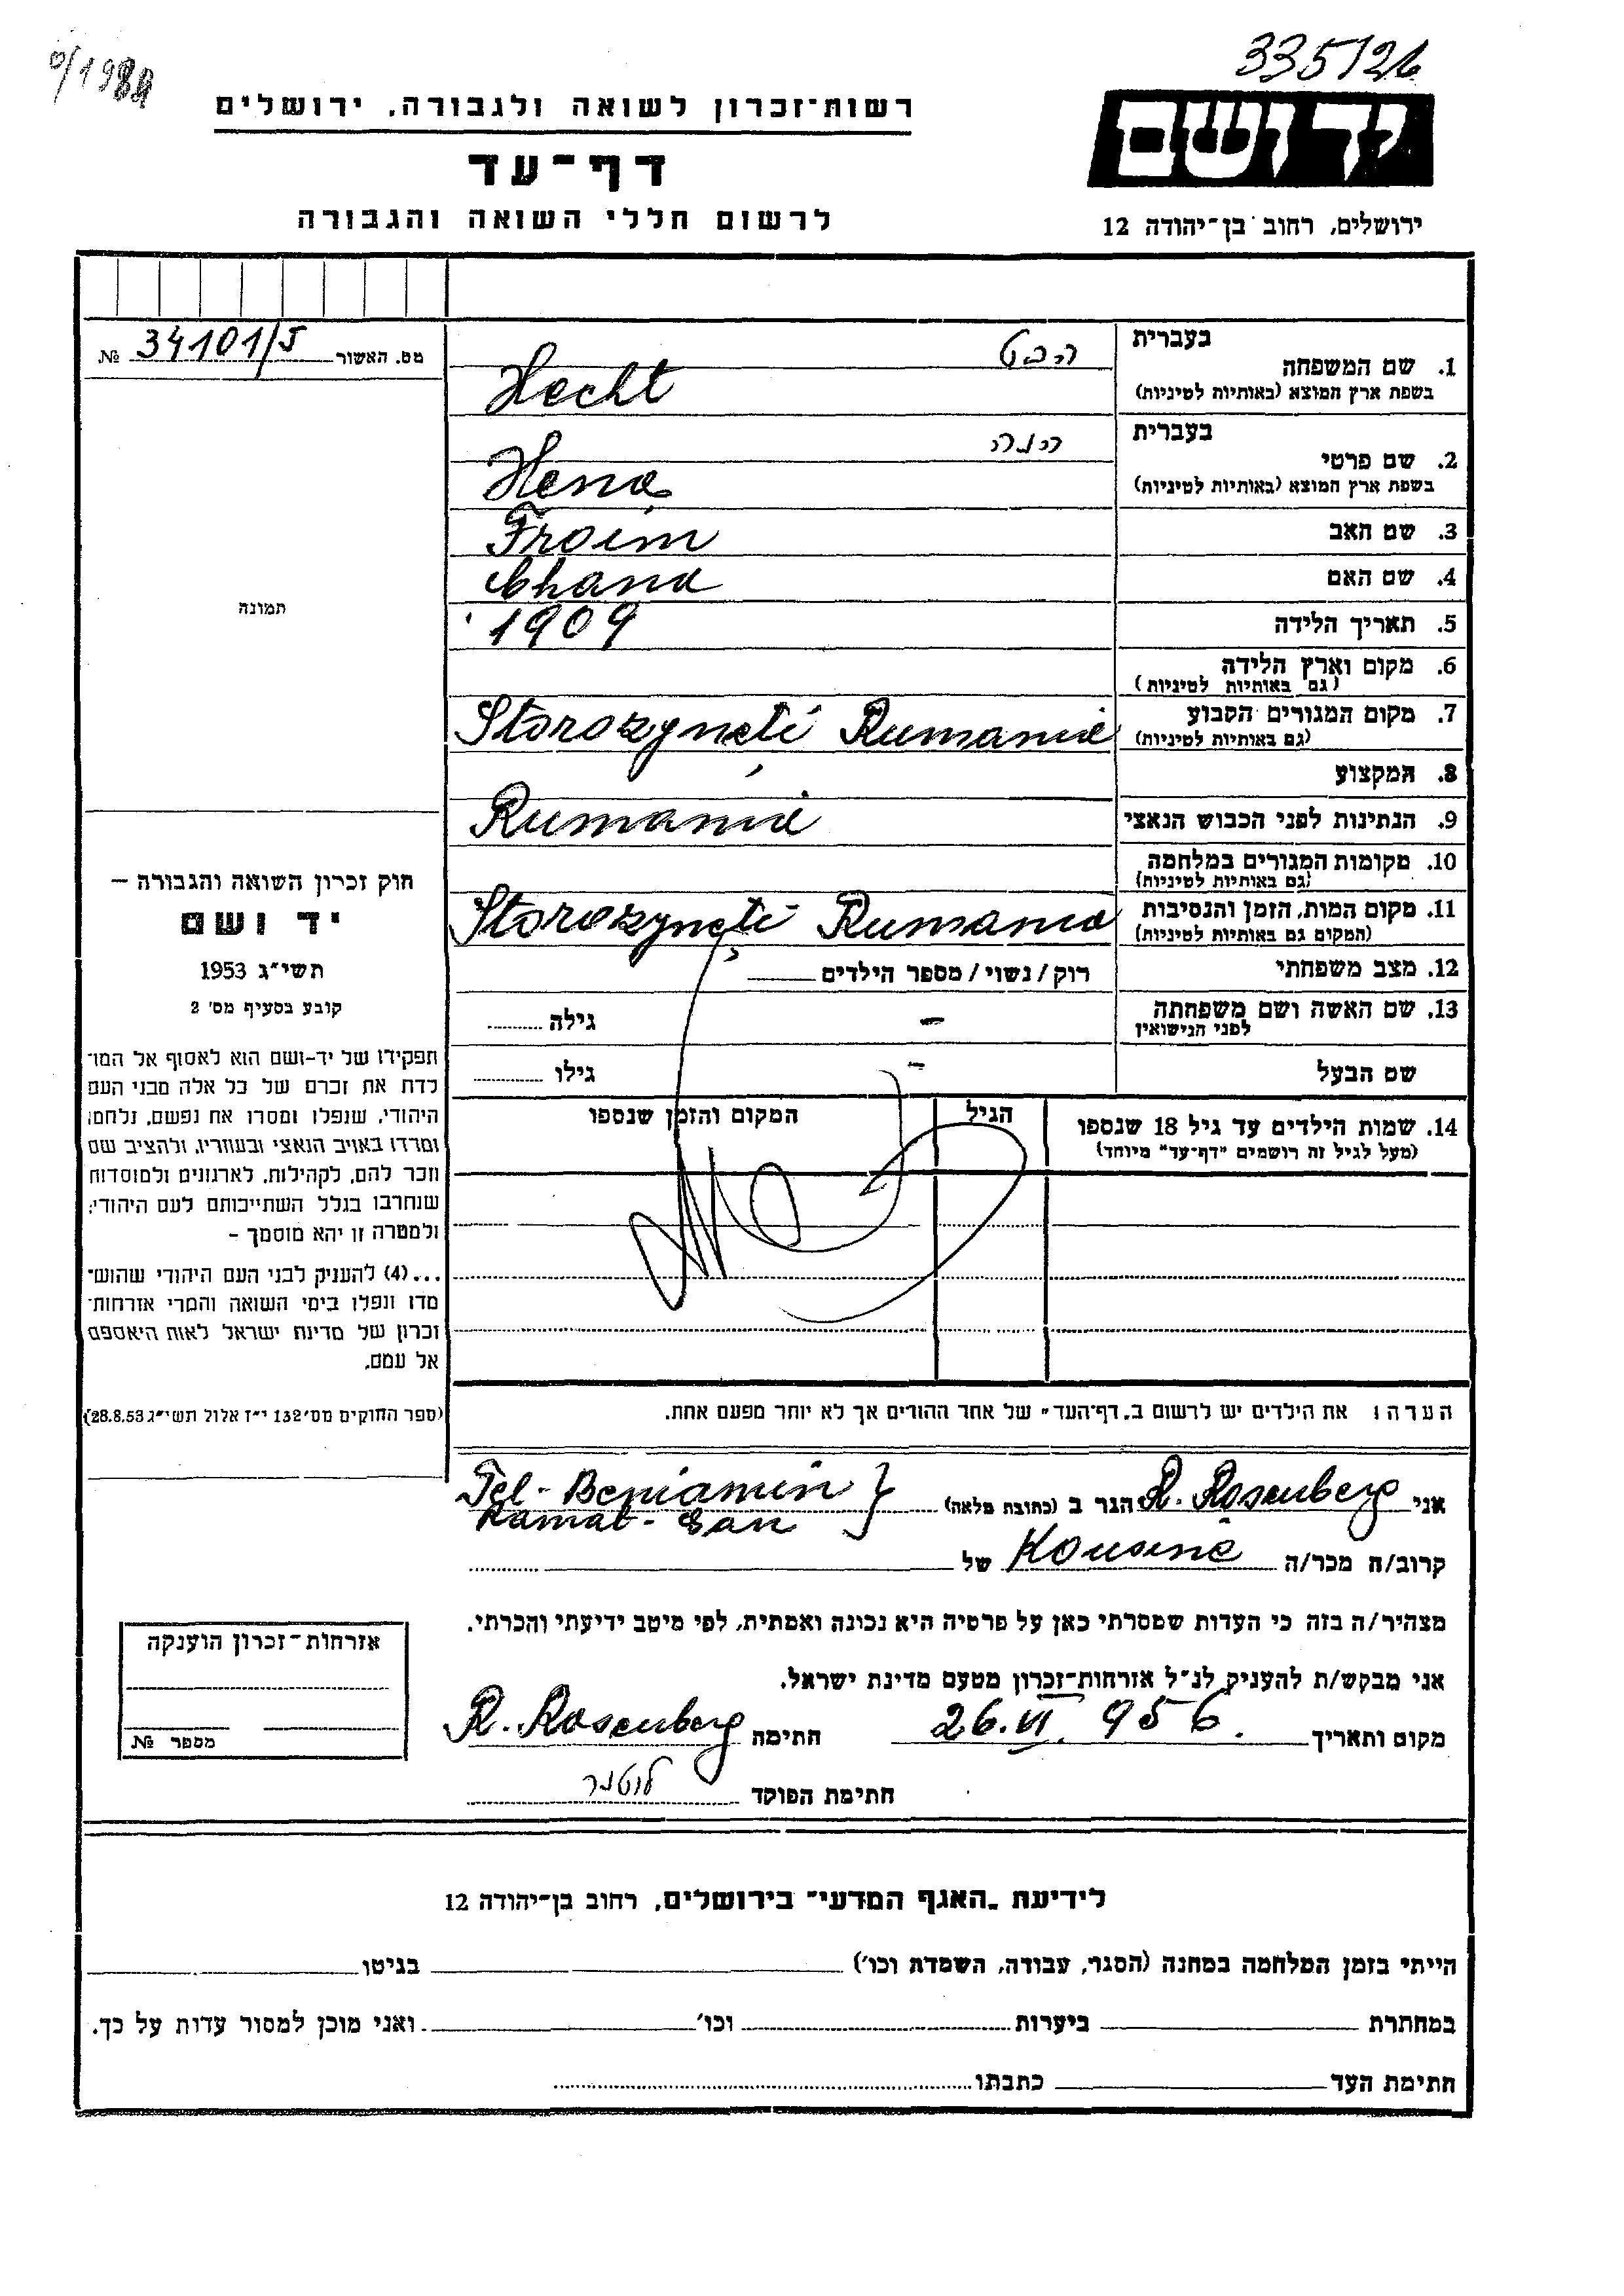 335/26
רשות־זכרון לשואה ולגבורה, ירושלים
יד ושם
דף־עד
לרשום חללי השואה והגבורה
ירושלים, רחוב בן־יהודה 12
מס. האשור 34101/5 №
תמונה
חוק זכרון השואה והגבורה –
יד ושם
תשי״ג 1953
קובע בסעיף מס' 2
תפקידו של יד-ושם הוא לאסוף אל המו־
לדת את זכרם של כל אלה מבני העם
היהודי, שנפלו ומסרו את נפשם, נלחמו
ומרדו באויב הנאצי ובעוזריו, ולהציב שם
וזכר להם, לקהילות, לארגונים ולמוסדות
שנחרבו בגלל השתייכותם לעם היהודי;
ולמטרה זו יהא מוסמך –
...(4) להעניק לבני העם היהודי שהוש־
מדו ונפלו בימי השואה והמרי אזרחות־
זכרון של מדינת ישראל לאות היאספם
אל עמם.
(ספר החוקים מס' 132 י״ז אלול תשי״ג 28.8.53)
בעברית הכט
1. שם המשפחה
בשפת ארץ המוצא (באותיות לטיניות) Hecht
בעברית הנה
2. שם פרטי
בשפת ארץ המוצא (באותיות לטיניות) Hena
3. שם האב Froim
4. שם האם Chana
5. תאריך הלידה 1909
6. מקום וארץ הלידה
(גם באותיות לטיניות)
7. מקום המגורים הקבוע Storozyneti Rumanie
(גם באותיות לטיניות)
8. המקצוע
9. הנתינות לפני הכבוש הנאצי Rumänie
10. מקומות המגורים במלחמה
(גם באותיות לטיניות)
11. מקום המות, הזמן והנסיבות Storozyneti Rumania
(המקום גם באותיות לטיניות)
12. מצב משפחתי רוק / נשוי / מספר הילדים
13. שם האשה ושם משפחתה – גילה
לפני הנישואין
שם הבעל – גילו
14. שמות הילדים עד גיל 18 שנספו הגיל המקום והזמן שנספו
(מעל לגיל זה רושמים "דף־עד" מיוחד)
הערה: את הילדים יש לרשום ב„דף־העד" של אחד ההורים אך לא יותר מפעם אחת.
אני R. Rosenberg הגר ב (כתובת מלאה) Tel-Beniamin
Ramat-Gan
קרוב/ה מכר/ה Kousine של
מצהיר/ה בזה כי העדות שמסרתי כאן על פרטיה היא נכונה ואמתית, לפי מיטב ידיעתי והכרתי.
אני מבקש/ת להעניק לנ״ל אזרחות־זכרון מטעם מדינת ישראל.
מקום ותאריך 26.VI.956. חתימה R. Rosenberg
חתימת הפוקד
אזרחות־זכרון הוענקה
מספר №
לידיעת „האגף המדעי" בירושלים, רחוב בן־יהודה 12
הייתי בזמן המלחמה במחנה (הסגר, עבודה, השמדה וכו') בגיטו
במחתרת ביערות וכו' ואני מוכן למסור עדות על כך.
חתימת העד כתבתו